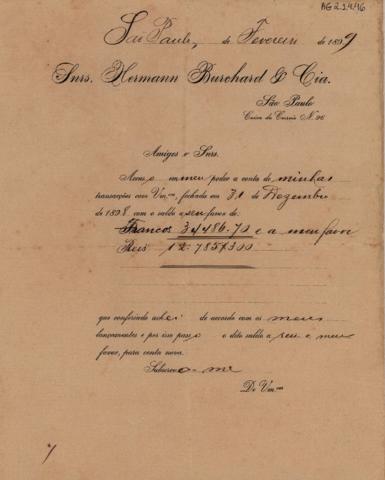 AG 2.14.16
São Paulo, de Fevereiro de 1899
Snrs. Hermann Burchard & Cia.
São Paulo
Caixa do Correio N. 96
Amigos e Snrs.
em meu poder a conta de minhas
transacções com Vm.ces, fechada em 31 de Dezembro
de 1898 com o saldo a seu favor de:
Francos 34486.70 e a meu favor
Reis 12:785$300
que conferindo achei de accordo com os meus
lançamentos e por isso passo o dito saldo a seu e meu
favor, para conta nova.
Subscrevo-me
De Vm.ces